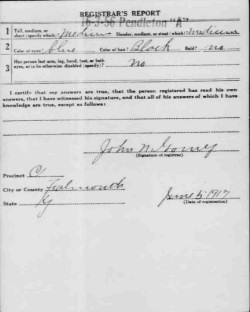 REGISTRAR'S REPORT
16-3-56 Pendleton "A"
1 Tall, medium, or short (specify which)? medium Slender, medium, or stout (which)? medium
2 Color of eyes? blue Color of hair? Black Bald? no
3 Has person lost arm, leg, hand, foot, or both eyes, or is he otherwise disabled (specify)? no
I certify that my answers are true, that the person registered has read his own
answers, that I have witnessed his signature, and that all of his answers of which I have
knowledge are true, except as follows:
John N
(Signature of registrar)
Precinct
City or County Falmouth
State Ky
June 5 1917
(Date of registration)